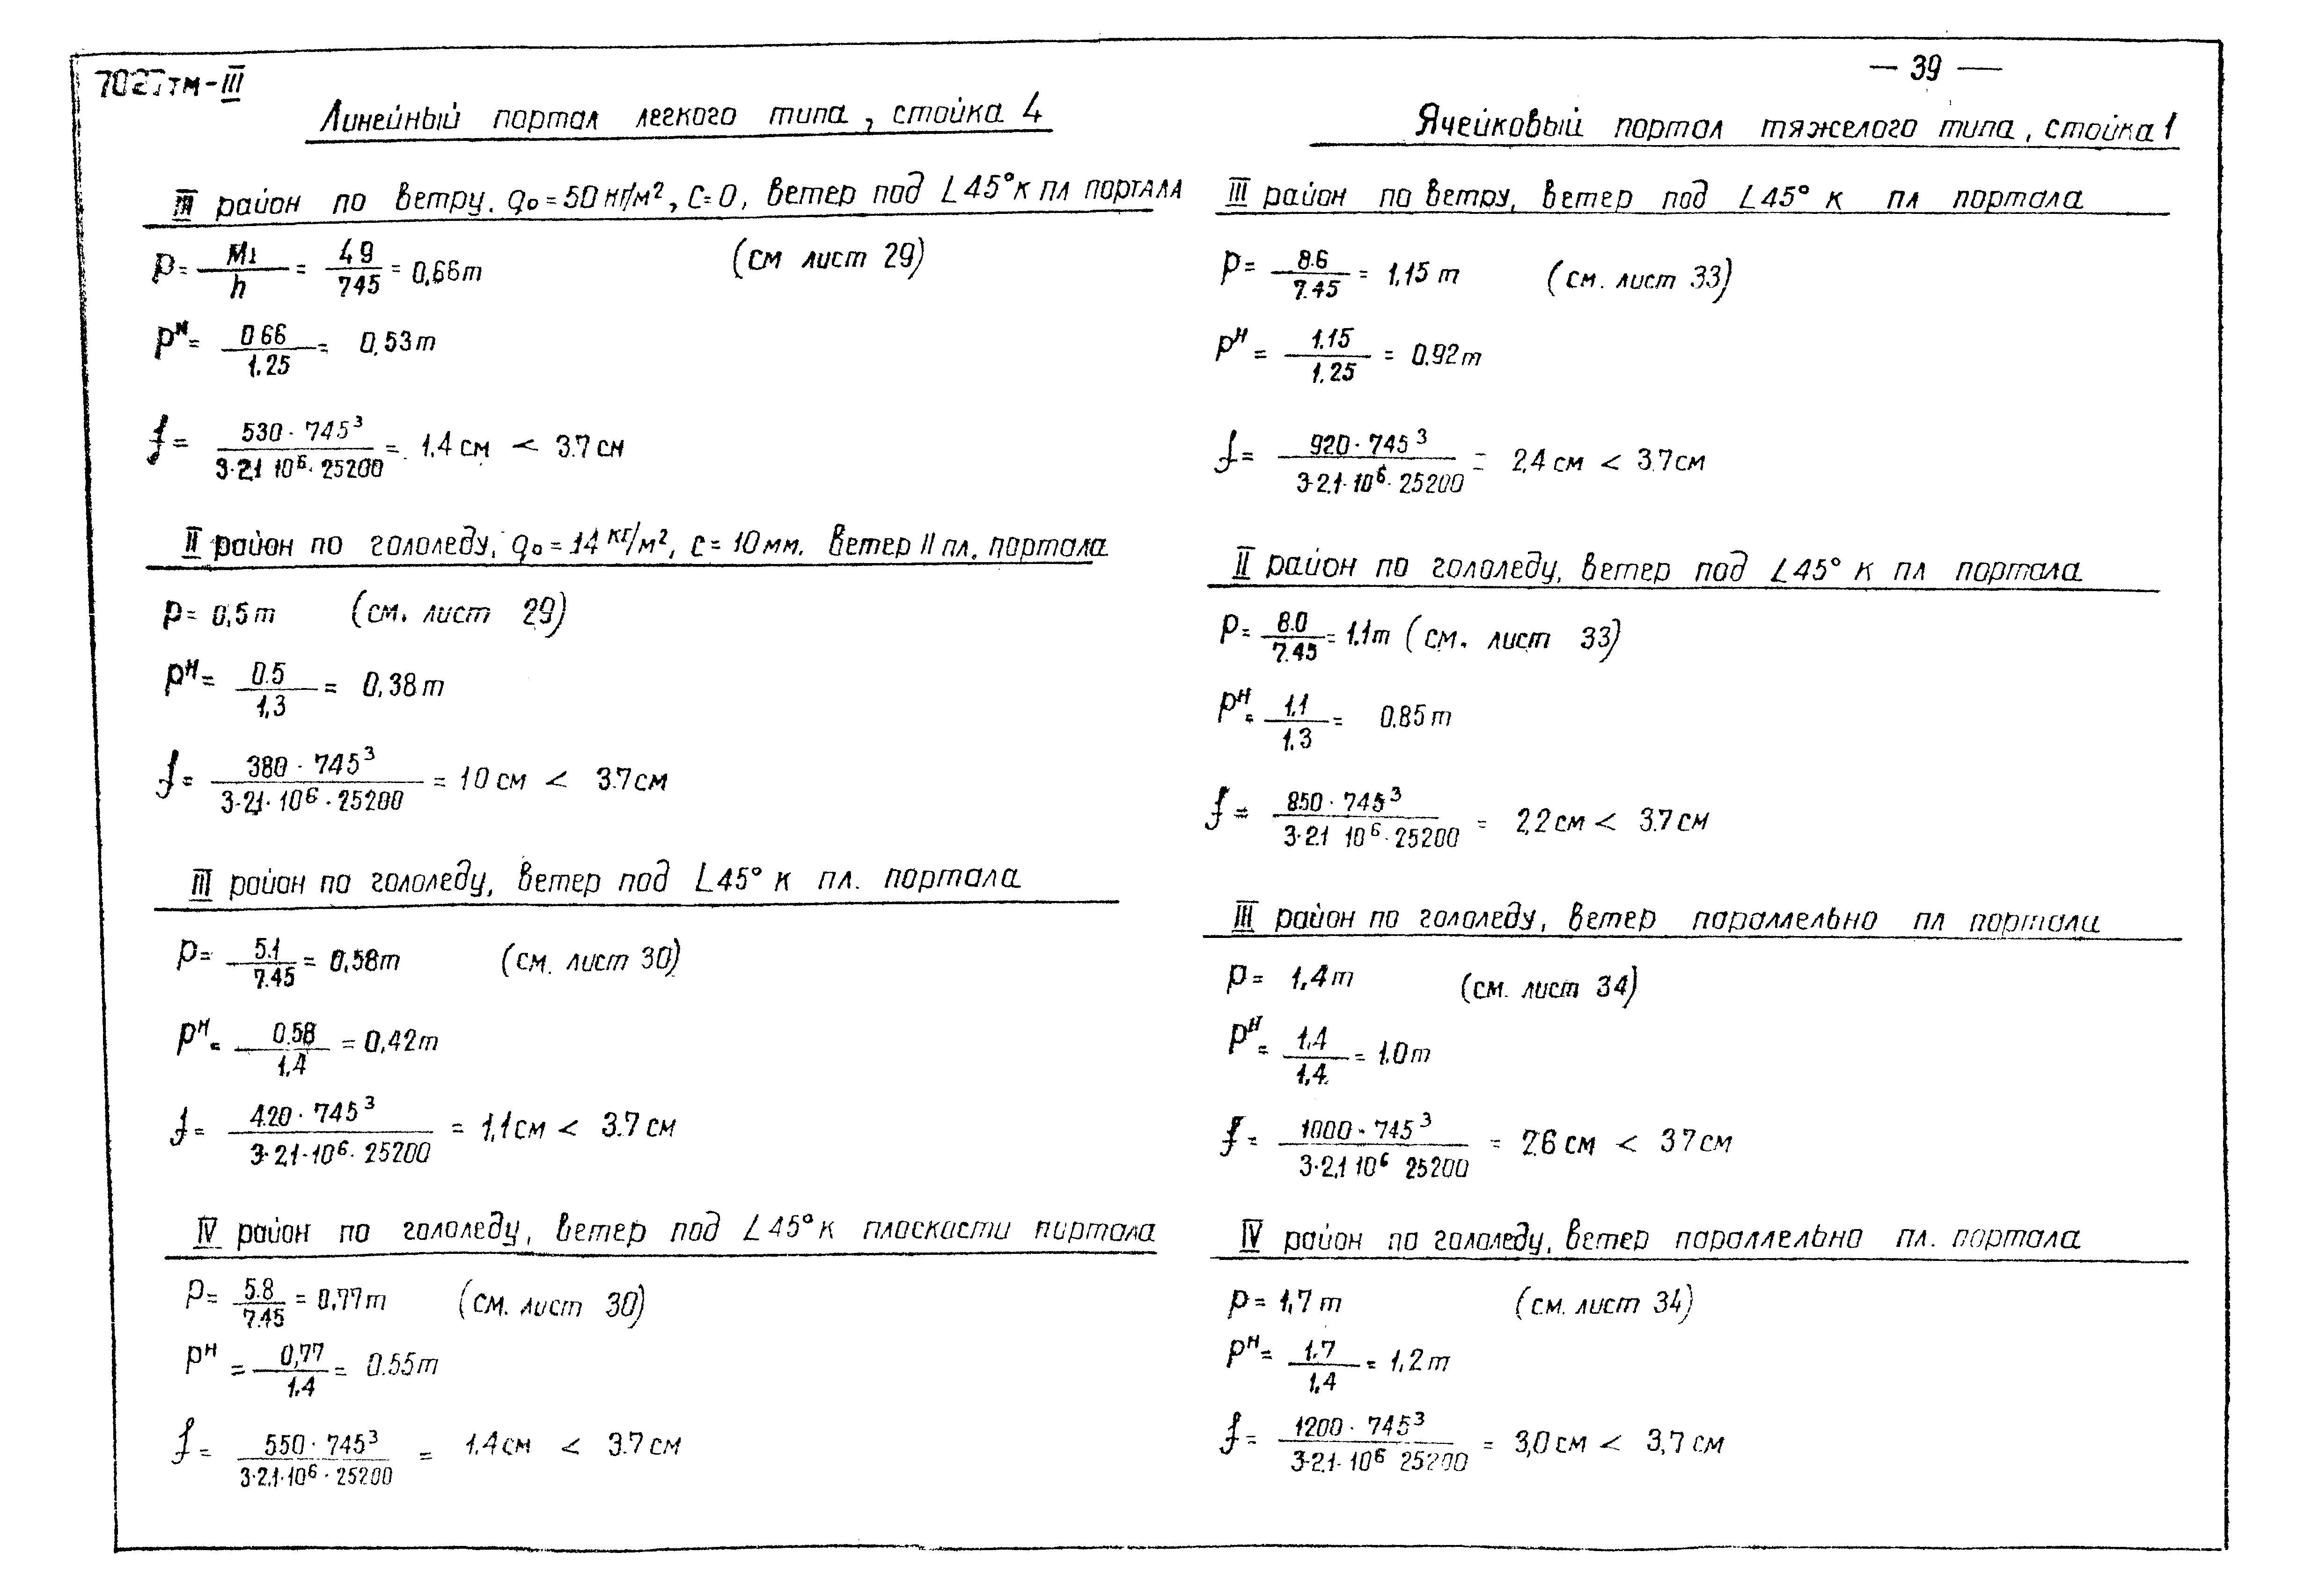 7027тм-III
— 39 —
Линейный портал легкого типа, стойка 4
III район по ветру. q₀=50 кг/м², C=0, ветер под ∠45° к пл портала
P = M₁/h = 4 9/745 = 0,66т (см лист 29)
Pᴺ = 0 66/1.25 = 0,53т
f = 530 · 745³/3·2,1 10⁶·25200 = 1,4 см < 3.7 см
II район по гололеду, q₀=14 кг/м², c=10мм. Ветер II пл. портала
P = 0,5т (см. лист 29)
Pᴴ = 0.5/1,3 = 0,38т
f = 380 · 745³/3·21·10⁶·25200 = 10 см < 3.7см
III район по гололеду, ветер под ∠45° к пл. портала
P = 5.1/7.45 = 0,58т (см. лист 30)
Pᴴ = 0.58/1,4 = 0,42т
f = 420 · 745³/3·2,1·10⁶·25200 = 1,1см < 3.7см
IV район по гололеду, ветер под ∠45° к плоскасти портала
P = 5.8/7.45 = 0,77т (см. лист 30)
Pᴴ = 0,77/1.4 = 0.55т
f = 550 · 745³/3·2.1·10⁶·25200 = 1.4см < 3.7 см
Ячейковый портал тяжелого типа, стойка 1
III район по ветру, ветер под ∠45° к пл портала
P = 8.6/7.45 = 1,15 т (см. лист 33)
Pᴴ = 1.15/1.25 = 0.92т
f = 920 · 745³/3·2,1·10⁶·25200 = 2,4 см < 3.7см
II район по гололеду, ветер под ∠45° к пл портала
P = 8.0/7.45 = 1.1т (см. лист 33)
Pᴴ = 1.1/1.3 = 0.85т
f = 850 · 745³/3·2.1 10⁶·25200 = 2,2 см < 3.7 см
III район по гололеду, ветер параллельно пл портала
P = 1,4т (см. лист 34)
Pᴴ = 1.4/1,4 = 1.0т
f = 1000 · 745³/3·2,1 10⁶ 25200 = 2.6 см < 3 7см
IV район по гололеду, ветер параллельно пл. портала
P = 1,7 т (см. лист 34)
Pᴴ = 1.7/1,4 = 1,2т
f = 1200 · 745³/3·2.1·10⁶ 25200 = 3,0 см < 3,7 см